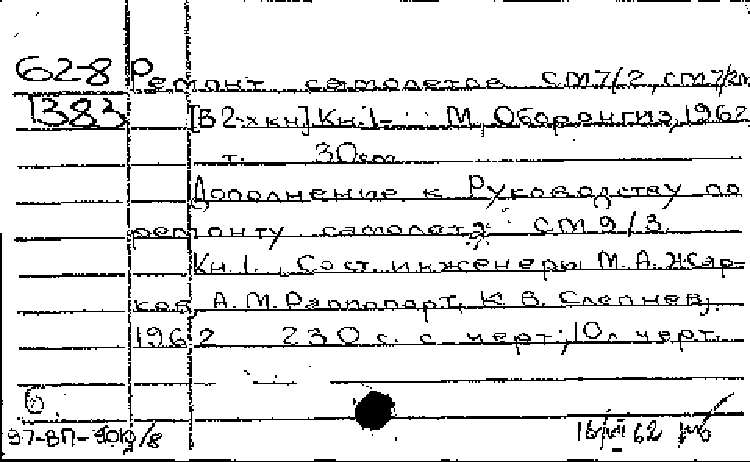 62-8 Ремонт самолетов СМ7/2, СМ7/2М
1383 [В 2-х кн] Кн.1- М., Оборонгиз, 1962
т. 30 см
Дополнение к Руководству по
ремонту самолета СМ 9/3
Кн. 1. Сост. инженеры М.А. Жар-
ков, А.М. Раппопорт, К.В. Слепнев.
1962 230 с. с черт; 10 л черт
б
97-ВП-
62